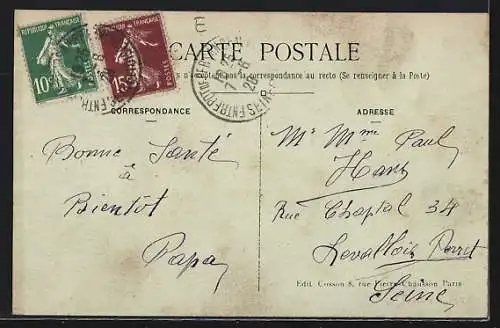 E
RÉPUBLIQUE FRANÇAISE
10c
POSTES
RÉPUBLIQUE FRANÇAISE
15c
POSTES
CARTE POSTALE
pas la correspondance au recto (Se renseigner à la Poste)
7-8
26
CORRESPONDANCE
ADRESSE
Bonne Santé
à
Bientot
Papa
Mr Mme Paul
Hans
Rue Chaptal 34
Levallois Perret
Seine
Edit. Cosson 8, rue Pierre Chausson Paris